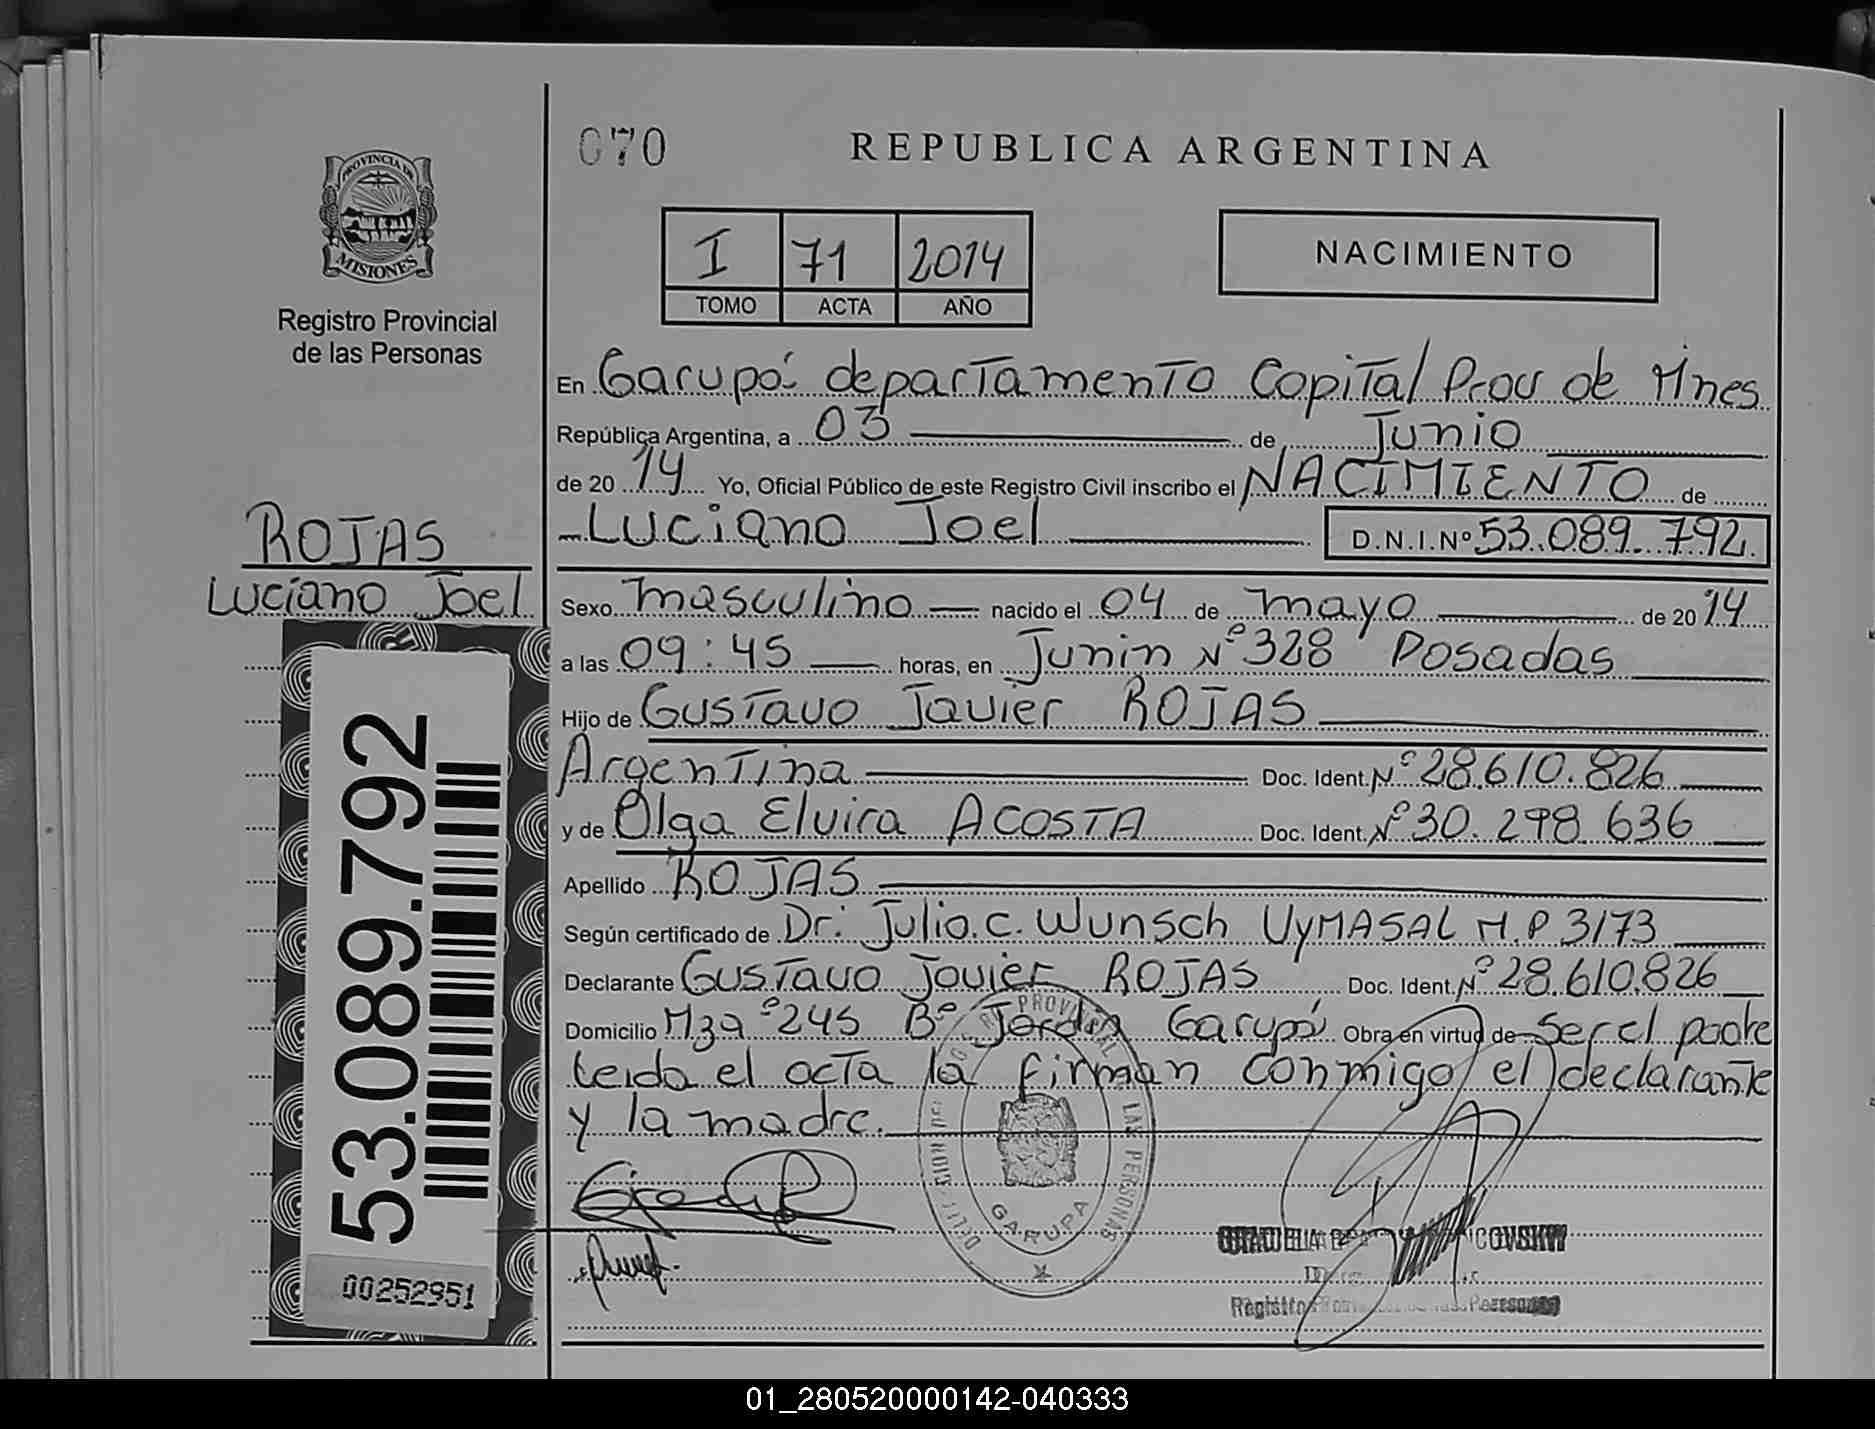 070
REPUBLICA ARGENTINA
PROVINCIA DE
MISIONES
Registro Provincial
de las Personas
I 71 2014
TOMO ACTA AÑO
NACIMIENTO
En Garupá departamento Capital Prov de Mnes
República Argentina, a 03 de Junio
de 2014 Yo, Oficial Público de este Registro Civil inscribo el NACIMIENTO de
Luciano Joel D.N.I.Nº 53.089.792
ROJAS
Luciano Joel
Sexo masculino nacido el 04 de mayo de 2014
a las 09:45 horas, en Junin Nº 328 Posadas
Hijo de Gustavo Javier ROJAS
Argentina Doc. Ident. Nº 28.610.826
y de Olga Elvira ACOSTA Doc. Ident. Nº 30.298.636
Apellido ROJAS
Según certificado de Dr: Julio.C. Wunsch UyMASAL M.P 3173
Declarante Gustavo Javier ROJAS Doc. Ident. Nº 28.610.826
Domicilio Mza º 245 Bº Jordan Garupá Obra en virtud de Ser el padre
Leida el acta la firman conmigo el declarante
y la madre.
53.089.792
00252951
LAS PERSONAS
GARUPA
Registro
01_280520000142-040333